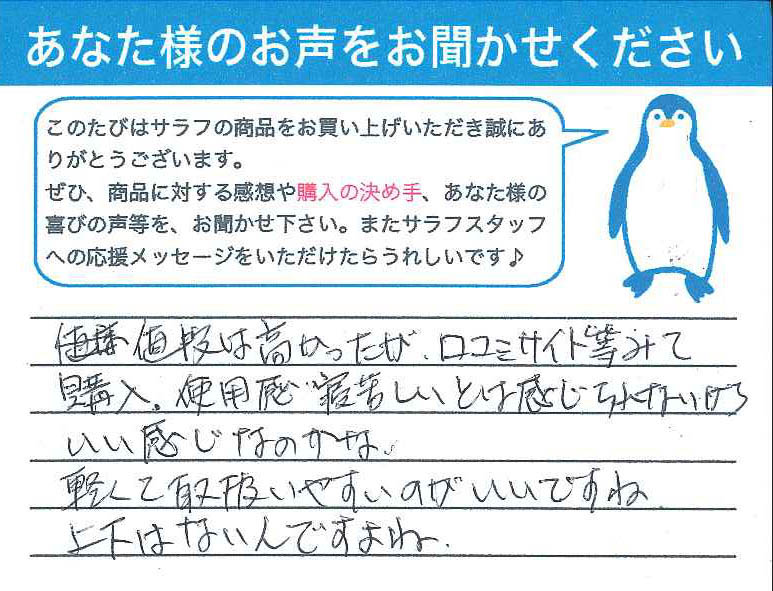 あなた様のお声をお聞かせください
このたびはサラフの商品をお買い上げいただき誠にあ
りがとうございます。
ぜひ、商品に対する感想や購入の決め手、あなた様の
喜びの声等を、お聞かせ下さい。またサラフスタッフ
への応援メッセージをいただけたらうれしいです♪
値段は高かったが、口コミサイト等みて
購入。使用感 寝苦しいとは感じられないから
いい感じなのかな。
軽くて取扱いやすいのがいいですね
上下はないんですよね.